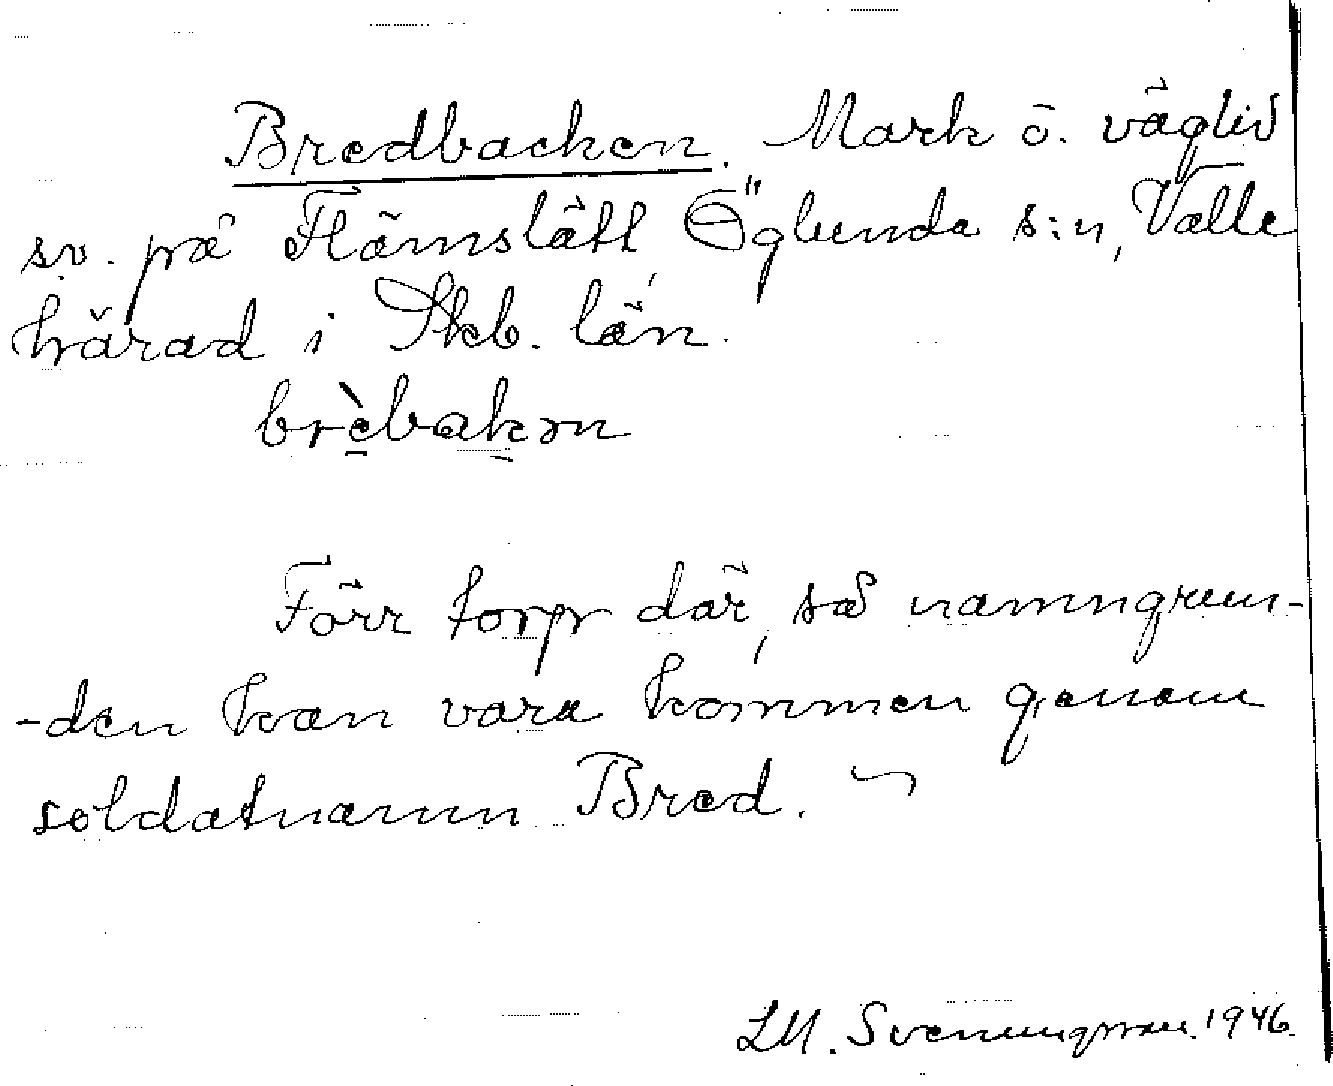 Bredbacken. Mark ö. väglid
sv. på Flämslätt, Öglunda s:n, Valle
härad i Skb. län.
brèbakən
Förr torp där, så namngrun-
-den kan vara kommen genom
soldatnamn Bred.
LM. Svenungsson. 1946.